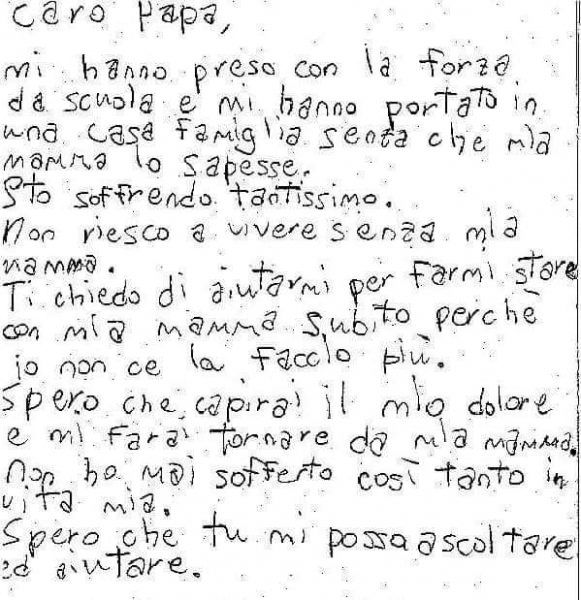 caro Papa,
mi hanno preso con la forza
da scuola e mi hanno portato in
una casa famiglia senza che mia
mamma lo sapesse.
Sto soffrendo tantissimo.
Non riesco a vivere senza mia
mamma.
Ti chiedo di aiutarmi per farmi stare
con mia mamma subito perchè
io non ce la faccio più.
Spero che capirai il mio dolore
e mi farai tornare da mia mamma.
Non ho mai sofferto così tanto in
vita mia.
Spero che tu mi possa ascoltare
ed aiutare.